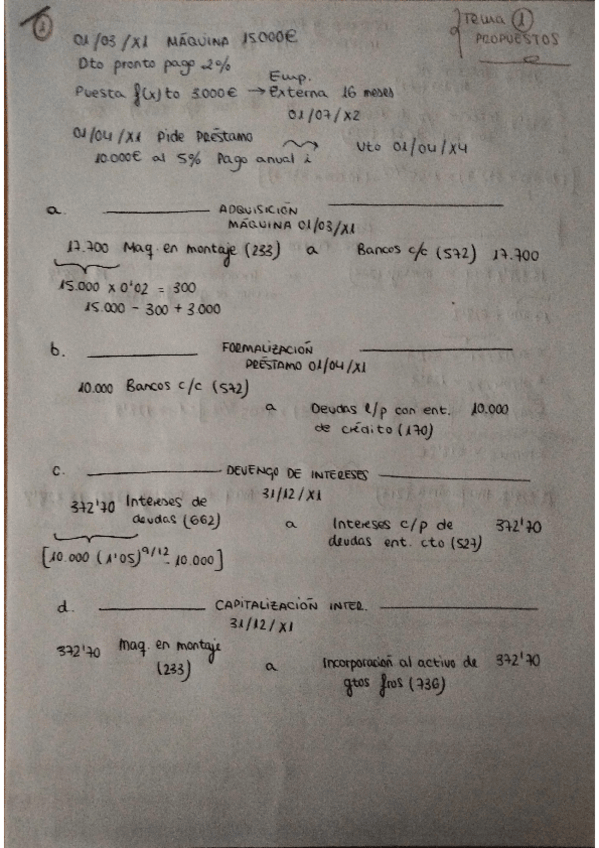 1
Tema 1
PROPUESTOS
01/03/X1 MÁQUINA 15.000€
Dto pronto pago 2%
Puesta f(x)to 3.000€ → Emp. Externa 16 meses
01/07/X2
01/04/X1 Pide Préstamo
10.000€ al 5% Pago anual i Vto 01/04/X4
a. ADQUISICIÓN
MÁQUINA 01/03/X1
17.700 Maq. en montaje (233) a Bancos c/c (572) 17.700
15.000 x 0'02 = 300
15.000 - 300 + 3.000
b. FORMALIZACIÓN
PRÉSTAMO 01/04/X1
10.000 Bancos c/c (572)
a Deudas l/p con ent. 10.000
de crédito (170)
c. DEVENGO DE INTERESES
31/12/X1
372'70 Intereses de
deudas (662) a Intereses c/p de 372'70
deudas ent. cto (527)
[10.000 (1'05)^9/12 - 10.000]
d. CAPITALIZACIÓN INTER.
31/12/X1
372'70 Maq. en montaje
(233) a Incorporación al activo de 372'70
gtos fros (736)